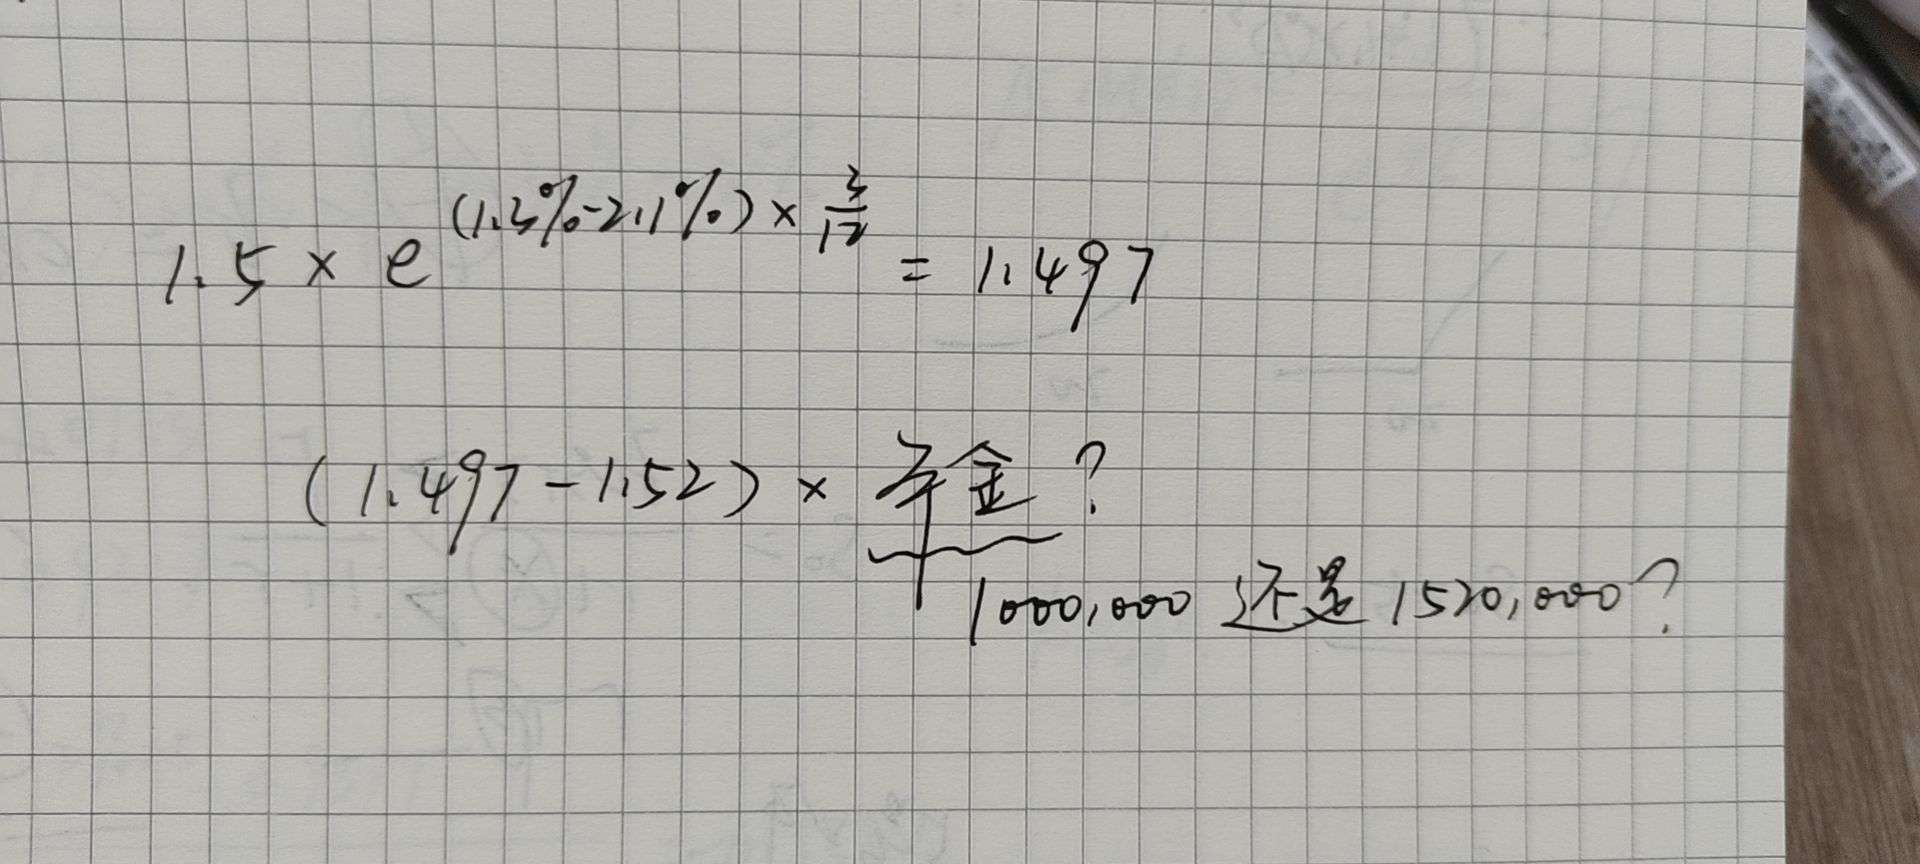 1.5 × e^(1.3%-2.1%) × 3/12 = 1.497
(1.497 - 1.52) × 本金?
1000,000 还是 1520,000?